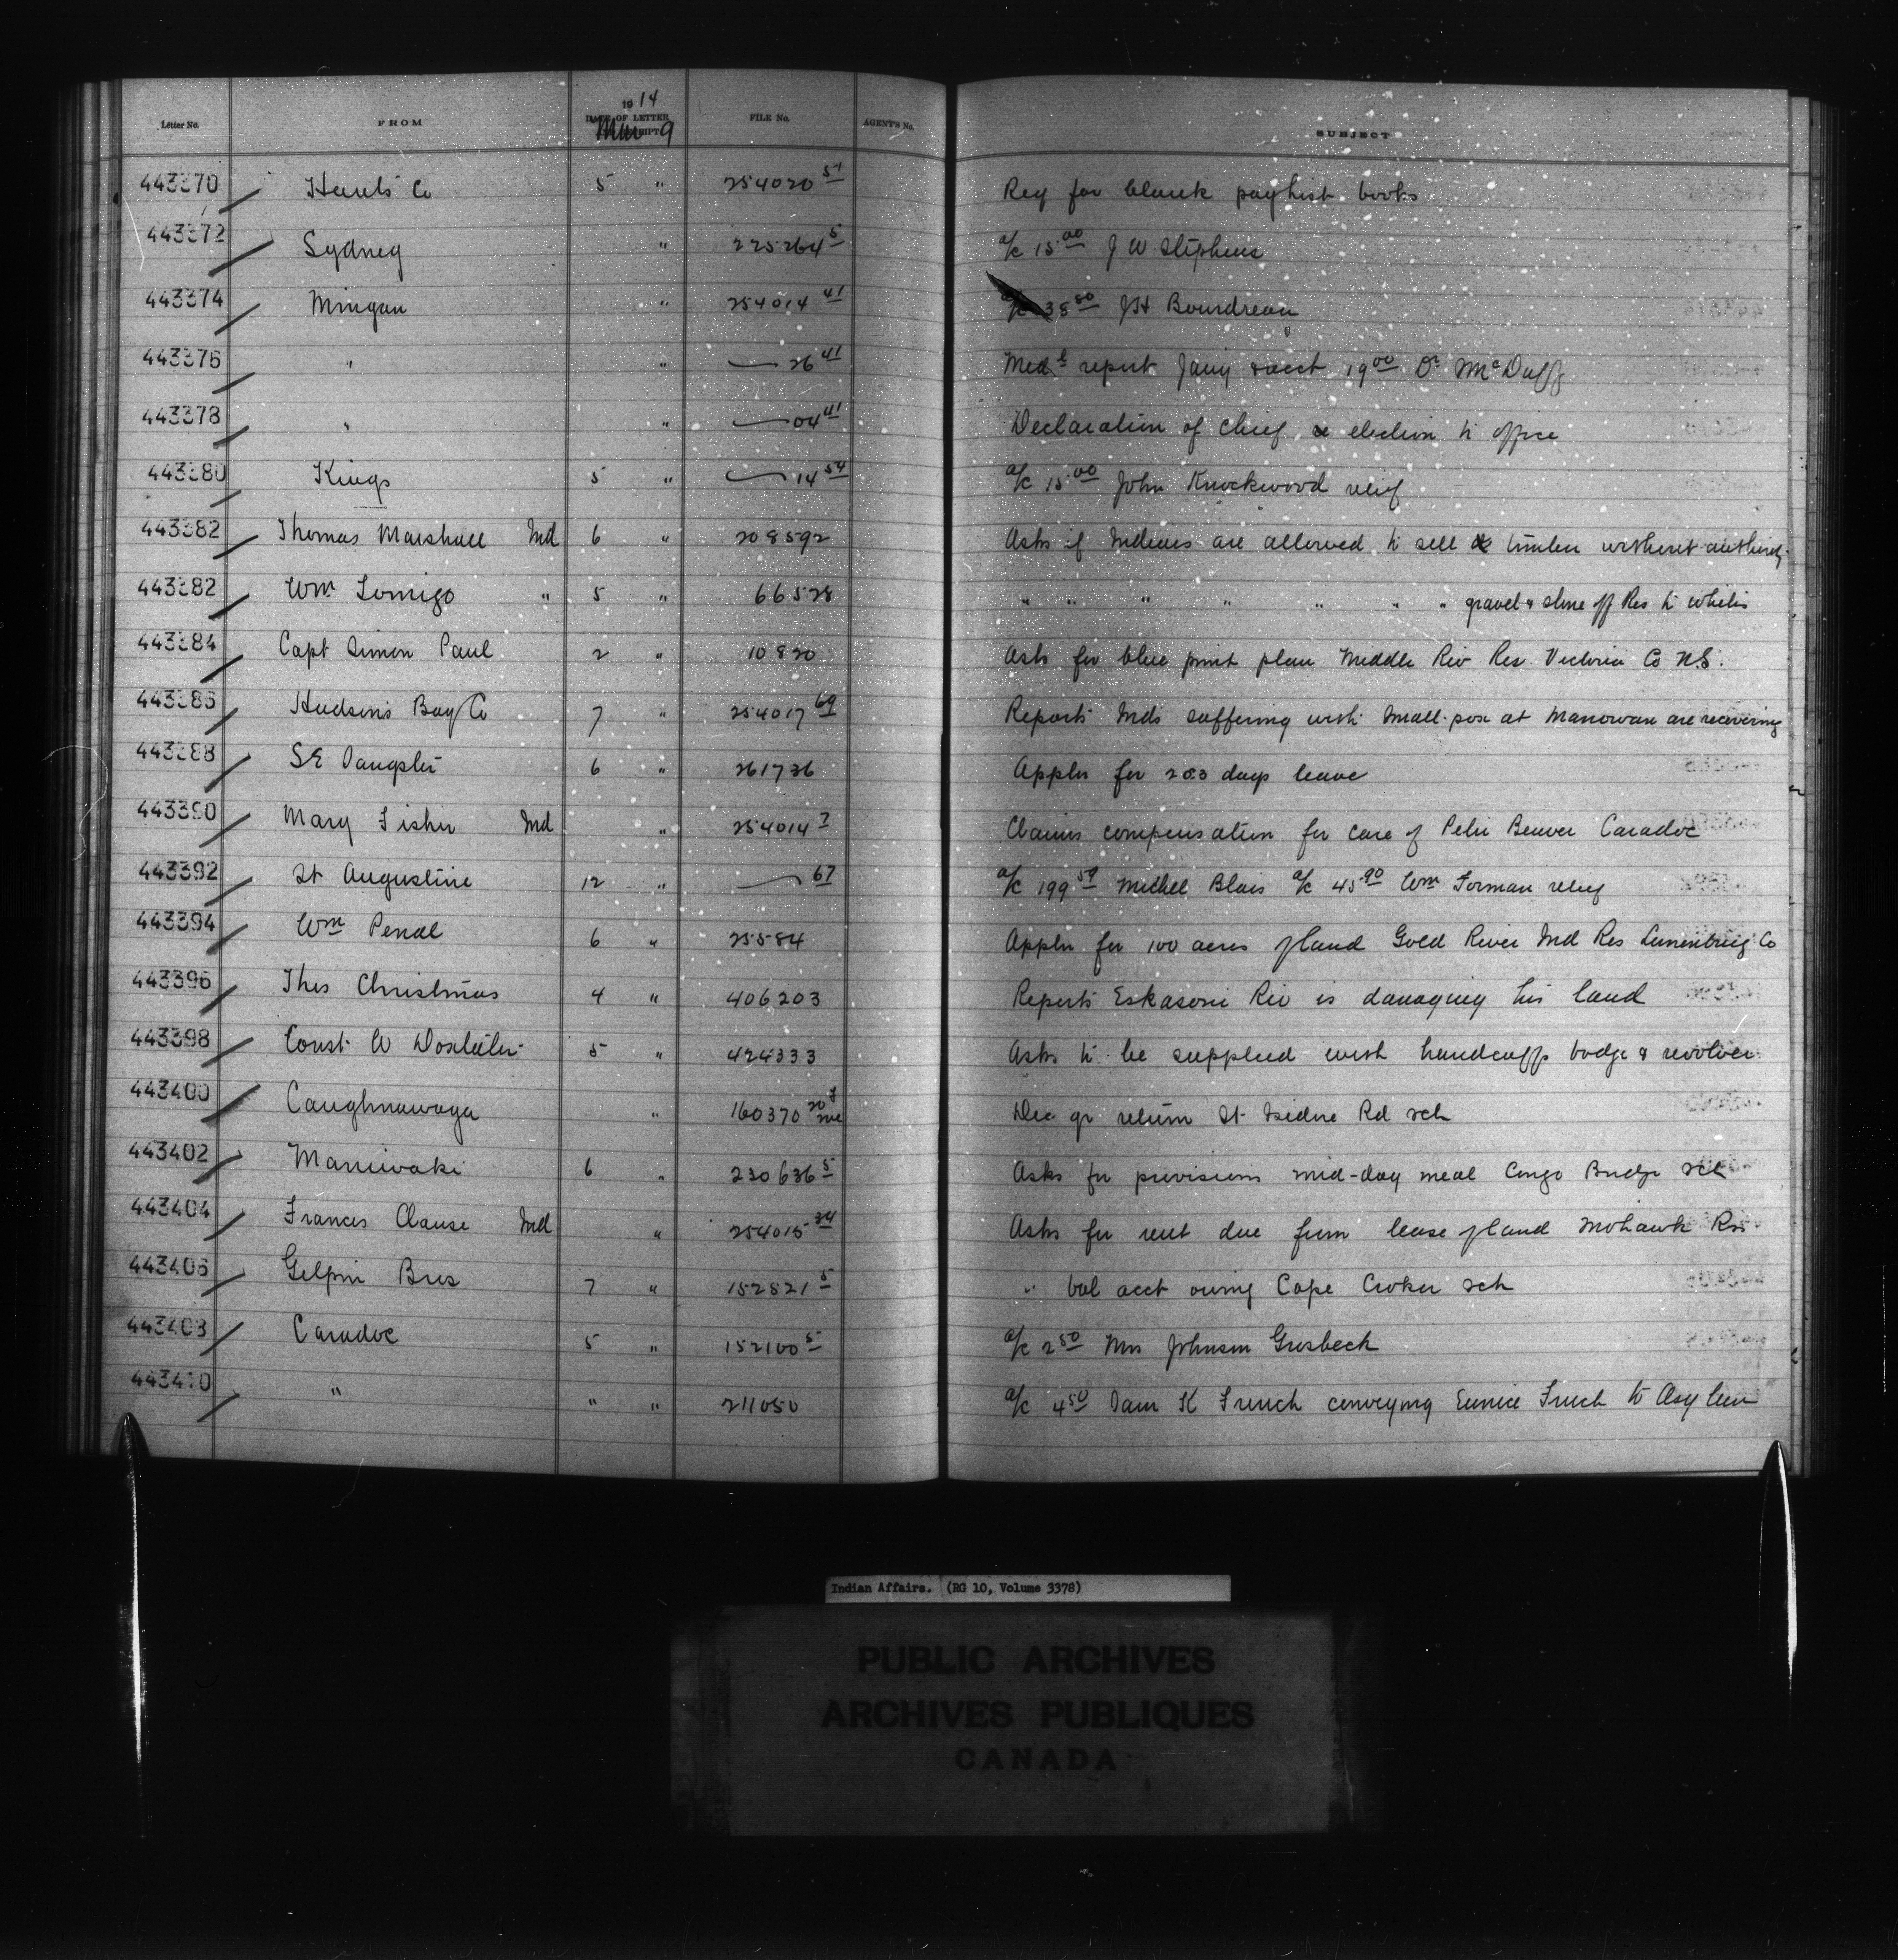 Letter No. FROM 1914 DATE OF LETTER RECEIPT Mar 9 FILE No. AGENT'S No. SUBJECT
443370 Hants Co 5 " 254020 57 Req for blank paylist books
443372 Sydney " 225264 5 a/c 15.00 J W Stephens
443374 Mingan " 254014 41 a/c 38 80 J H Boudreau
443376 " " — 26 41 Medl report Jany & acct 19 00 Dr McDuff
443378 " " — 04 41 Declaration of chief re election to office
443380 Kings 5 " — 14 54 a/c 15 00 John Knockwood relief
443382 Thomas Marshall Ind 6 " 208592 Asks if Indians are allowed to sell timber without authority
443382 Wm " 5 " 66528 " " " " " " " gravel & stone off Res to whites
443384 Capt Simon Paul 2 " 10820 Asks for blue print plan Middle Riv Res Victoria Co N.S.
443386 Hudson's Bay Co 7 " 254017 69 Reports Inds suffering with small-pox at Manowan are recovering
443388 S E 6 " 261736 Appln for days leave
443390 Mary Fisher Ind " 254014 7 Claims compensation for care of Peter Beaver Caradoc
443392 St Augustine 12 " — 67 a/c 199 59 Michel Blais a/c 45 90 Wm Forman relief
443394 Wm Penal 6 " 25584 Appln for 100 acres of land Gold River Ind Res Lunenburg Co
443396 Thos Christmas 4 " 406203 Reports Eskasoni Riv is damaging his land
443398 Const W 5 " 424333 Asks to be supplied with handcuffs badge & revolver
443400 Caughnawaga " 160370 Dec qr return St Isidore Rd sch
443402 Maniwaki 6 " 230636 5 Asks for provisions mid-day meal Congo Bridge sch
443404 Frances Clause Ind " 254015 34 Asks for rent due from lease of land Mohawk Res
443406 Gilpin Bros 7 " 152821 5 " bal acct owing Cape Croker sch
443408 Caradoc 5 " 152100 5 a/c 2 50 Mrs Johnson Grosbeck
443410 " " " 211050 a/c 4 50 Sam K French conveying Eunice French to Asylum
Indian Affairs. (RG 10, Volume 3378)
PUBLIC ARCHIVES
ARCHIVES PUBLIQUES
CANADA